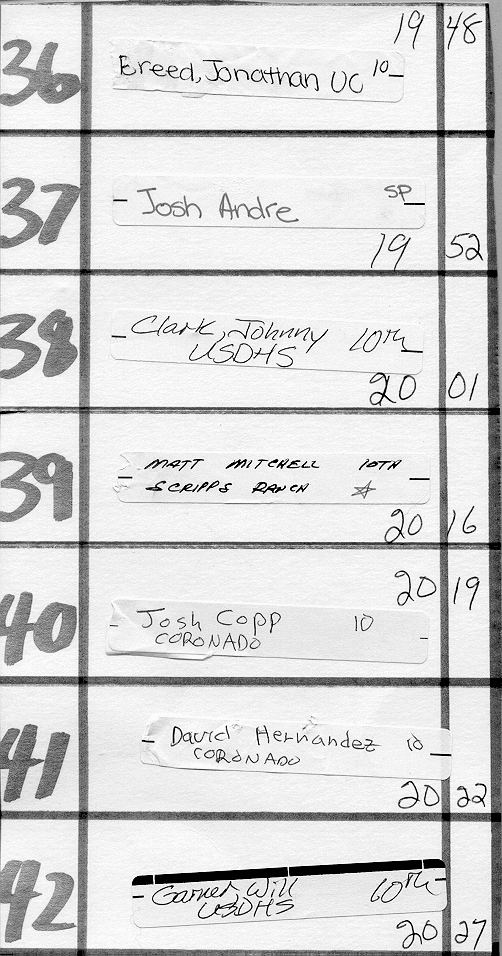 19 48
36 Breed, Jonathan UC 10
37 Josh Andre SP
19 52
38 Clark, Johnny 10th
USDHS
20 01
39 MATT MITCHELL 10TH
SCRIPPS RANCH ☆
20 16
20 19
40 Josh Copp 10
CORONADO
41 David Hernandez 10
CORONADO
20 22
42 Garner, Will 10th
USDHS
20 27